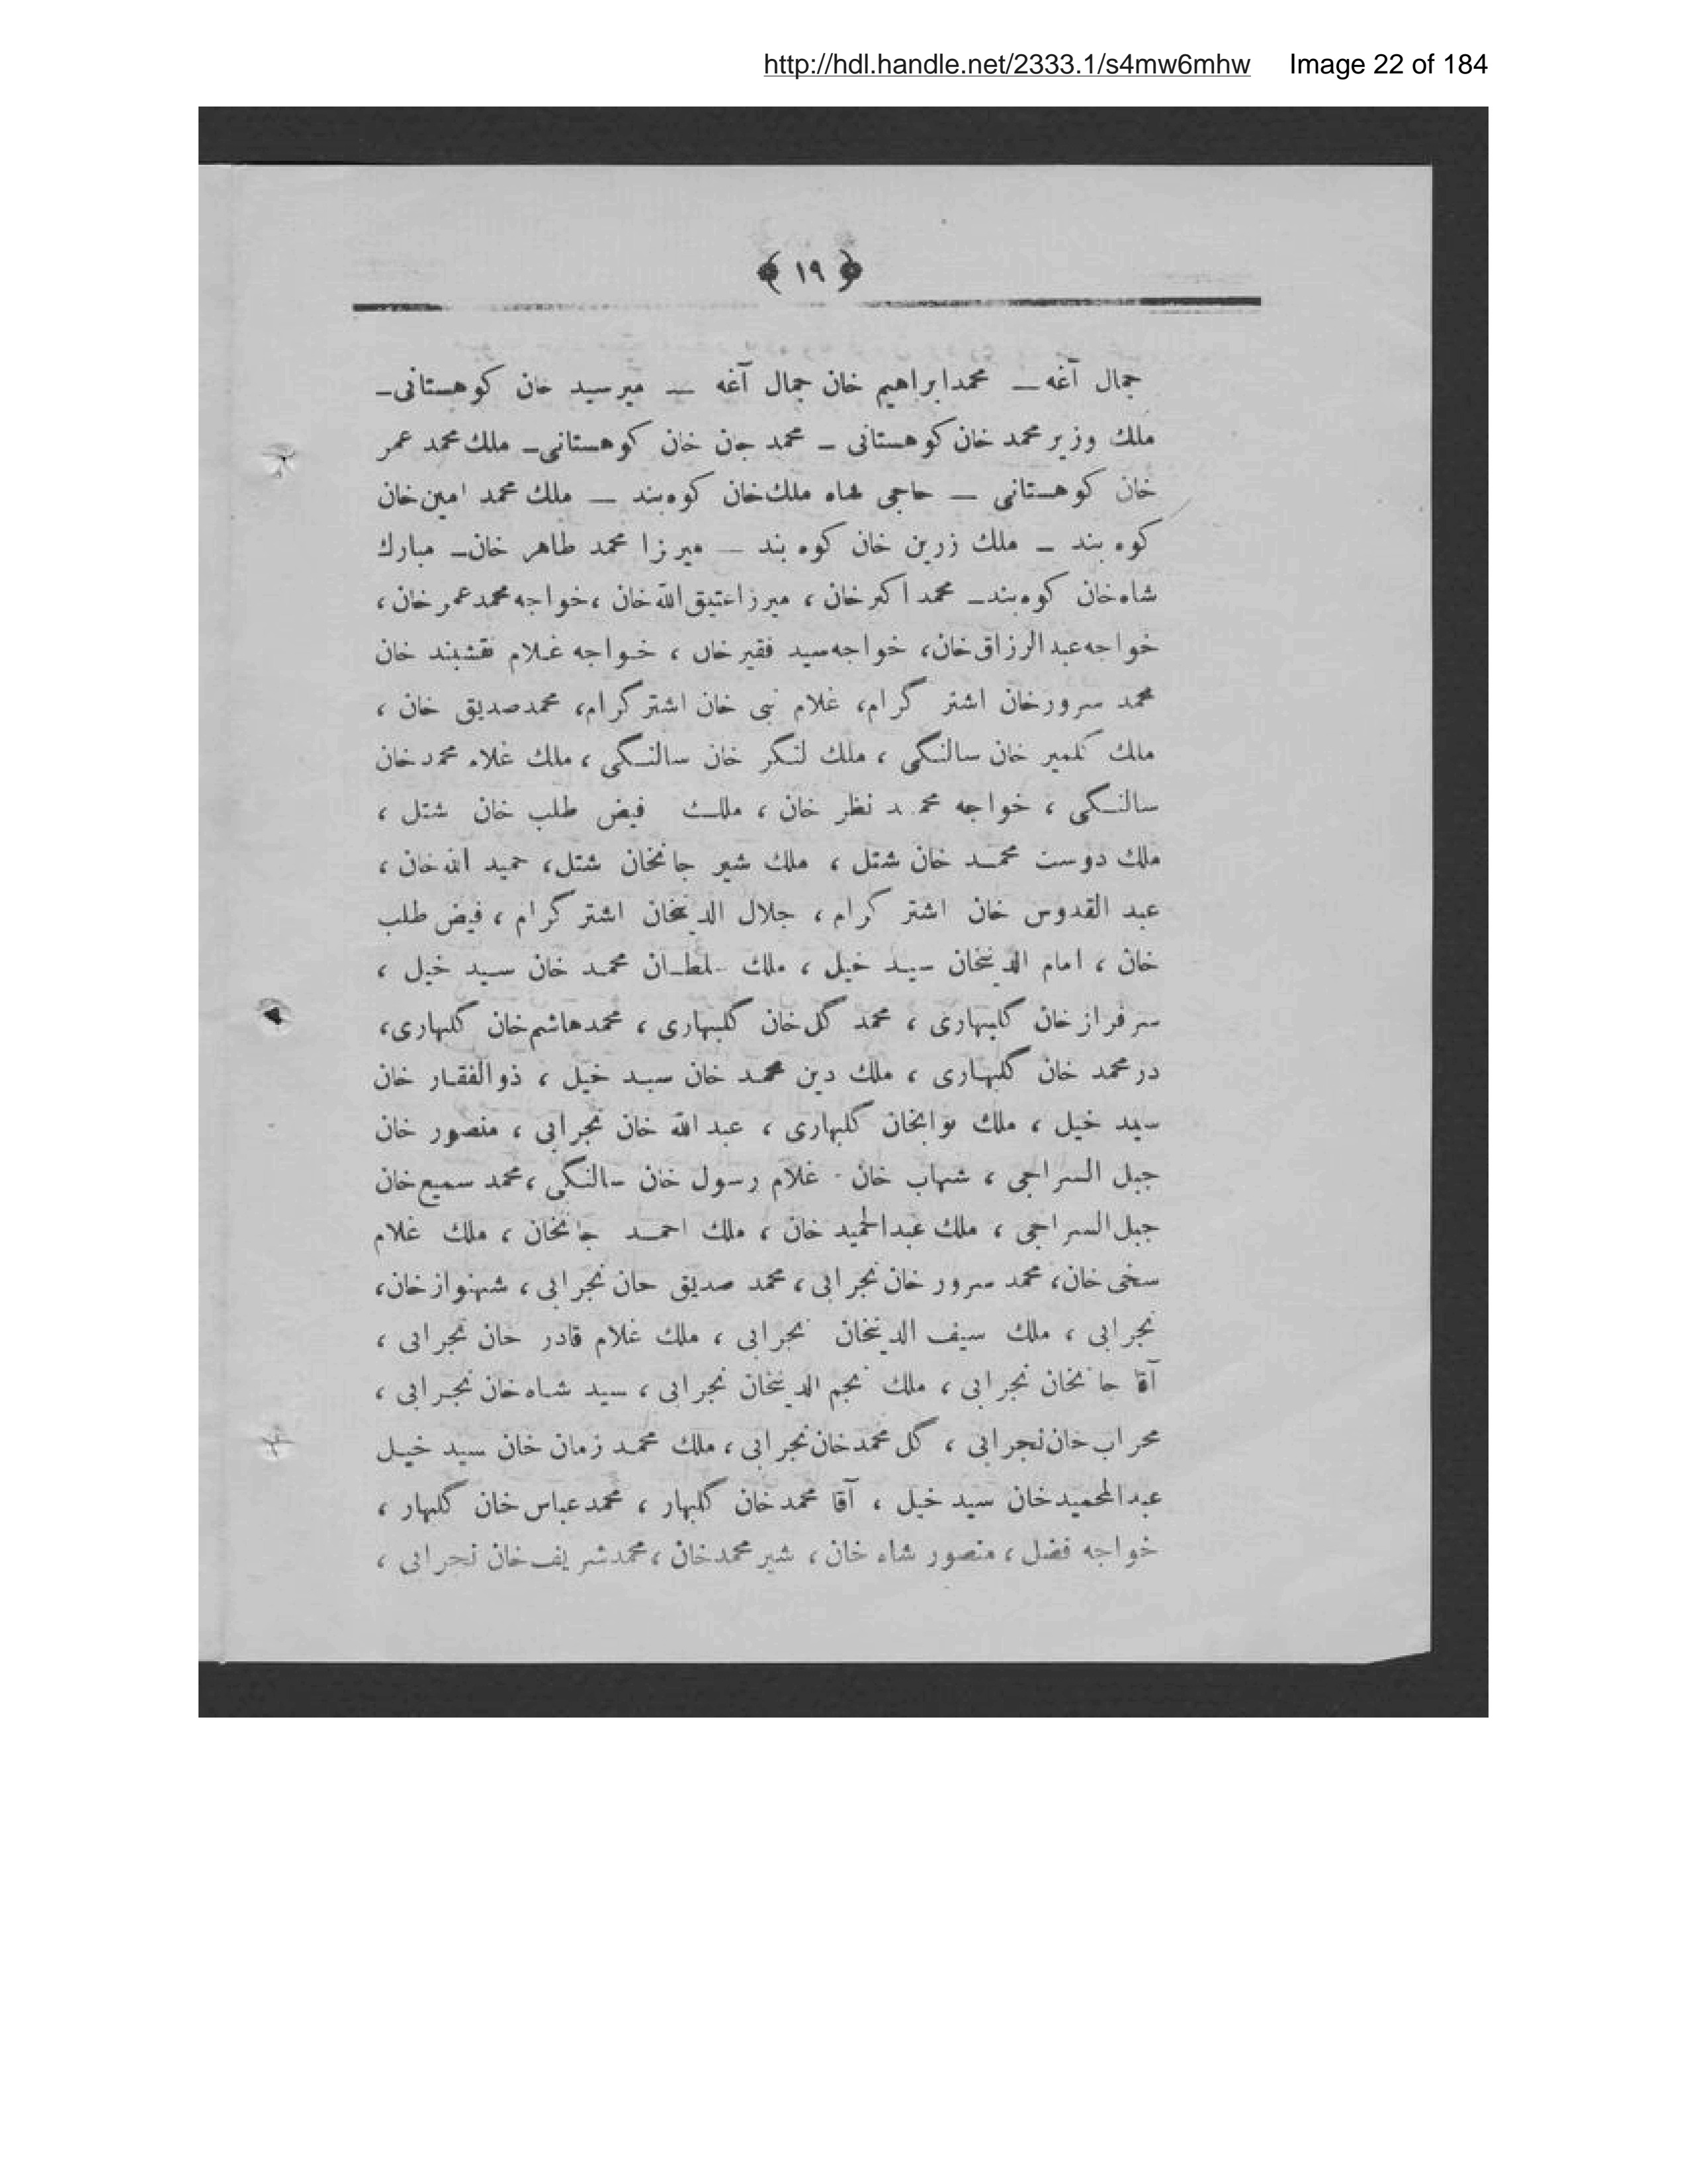 http://hdl.handle.net/2333.1/s4mw6mhw Image 22 of 184
﴿ ۱۹ ﴾
جمال آغه — محمدابراهیم خان جمال آغه — میر سید خان کوهستانی—
ملك وزیر محمد خان کوهستانی — محمد جان خان کوهستانی— ملك محمد عمر
خان کوهستانی — حاجی شاه ملك‌خان کوه‌بند — ملك محمد امین‌خان
کوه بند — ملك زرین خان کوه بند — میرزا محمد طاهر خان— مبارك
شاه‌خان کوه‌بند— محمد اکبرخان ، میرزا عتیق الله‌خان ، خواجه محمد عمر خان ،
خواجه عبدالرزاق خان، خواجه سید فقیر خان ، خواجه غلام نقشبند خان
محمد سرورخان اشتر گرام، غلام نبی خان اشتر گرام، محمدصدیق خان ،
ملك خان سالنگی ، ملك لنگر خان سالنگی ، ملك غلام محمد خان
سالنگی ، خواجه محمد نظر خان ، ملك فیض طلب خان شتل ،
ملك دوست محمد خان شتل ، ملك شیر جانخان شتل، حمید الله خان ،
عبد القدوس خان اشتر گرام ، جلال الدینخان اشتر گرام ، فیض طلب
خان ، امام الدینخان سید خیل ، ملك سلطان محمد خان سید خیل ،
سرفراز خان گلبهاری ، محمد گل خان گلبهاری ، محمدهاشم خان گلبهاری،
در محمد خان گلبهاری ، ملك دین محمد خان سید خیل ، ذوالفقار خان
سید خیل ، ملك نوابخان گلبهاری ، عبدالله خان نجرابی ، منصور خان
جبل السراجی ، شهاب خان - غلام رسول خان سالنگی ، محمد سمیع خان
جبل السراجی ، ملك عبدالحمید خان ، ملك احمد جانخان ، ملك غلام
سخی خان، محمد سرور خان نجرابی ، محمد صدیق خان نجرابی ، شهنواز خان،
نجرابی ، ملك سیف الدینخان نجرابی ، ملك غلام قادر خان نجرابی ،
آقا جانخان نجرابی ، ملك نجم الدینخان نجرابی ، سید شاه خان نجرابی ،
محراب خان نجرابی ، گل محمد خان نجرابی ، ملك محمد زمان خان سید خیل
عبدالمحمید خان سید خیل ، آقا محمد خان گلبهار ، محمد عباس خان گلبهار ،
خواجه فضل ، منصور شاه خان ، شیر محمد خان ، محمد شریف خان نجرابی ،